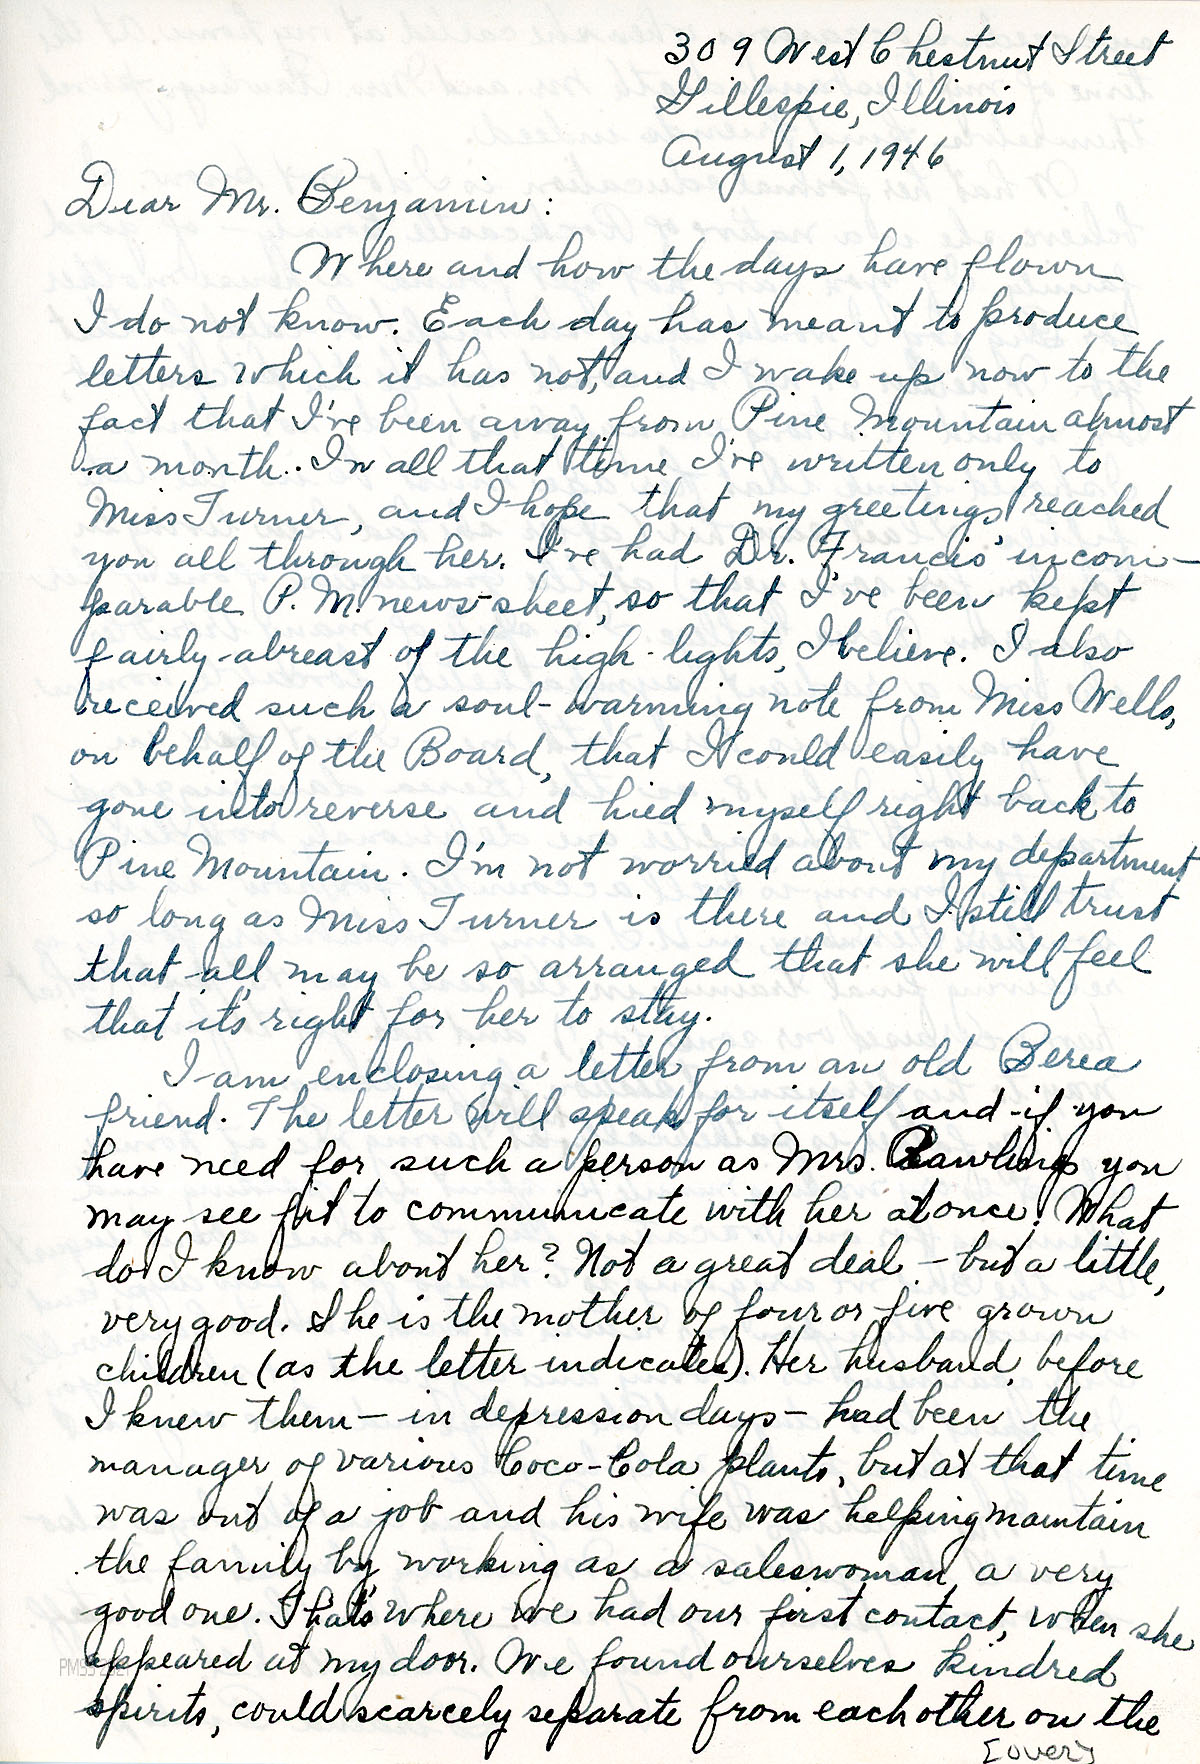 309 West Chestnut Street
Gillespie, Illinois
August 1, 1946
Dear Mr. Benjamin:
Where and how the days have flown
I do not know. Each day has meant to produce
letters which it has not, and I wake up now to the
fact that I've been away from Pine Mountain almost
a month. In all that time I've written only to
Miss Turner, and I hope that my greetings reached
you all through her. I've had Dr. Francis' incom-
parable P. M. news-sheet, so that I've been kept
fairly abreast of the high-lights, I believe. I also
received such a soul-warming note from Miss Wells,
on behalf of the Board, that I could easily have
gone into reverse and hied myself right back to
Pine Mountain. I'm not worried about my department
so long as Miss Turner is there and I still trust
that all may be so arranged that she will feel
that it's right for her to stay.
I am enclosing a letter from an old Berea
friend. The letter will speak for itself and if you
have need for such a person as Mrs. Rawlings you
may see fit to communicate with her at once. What
do I know about her? Not a great deal – but a little,
very good. She is the mother of four or five grown
children (as the letter indicates). Her husband, before
I knew them – in depression days – had been the
manager of various Coco-Cola plants, but at that time
was out of a job and his wife was helping maintain
the family by working as a saleswoman, a very
good one. That's where we had our first contact, when she
appeared at my door. We found ourselves kindred
spirits, could scarcely separate from each other on the
[over]